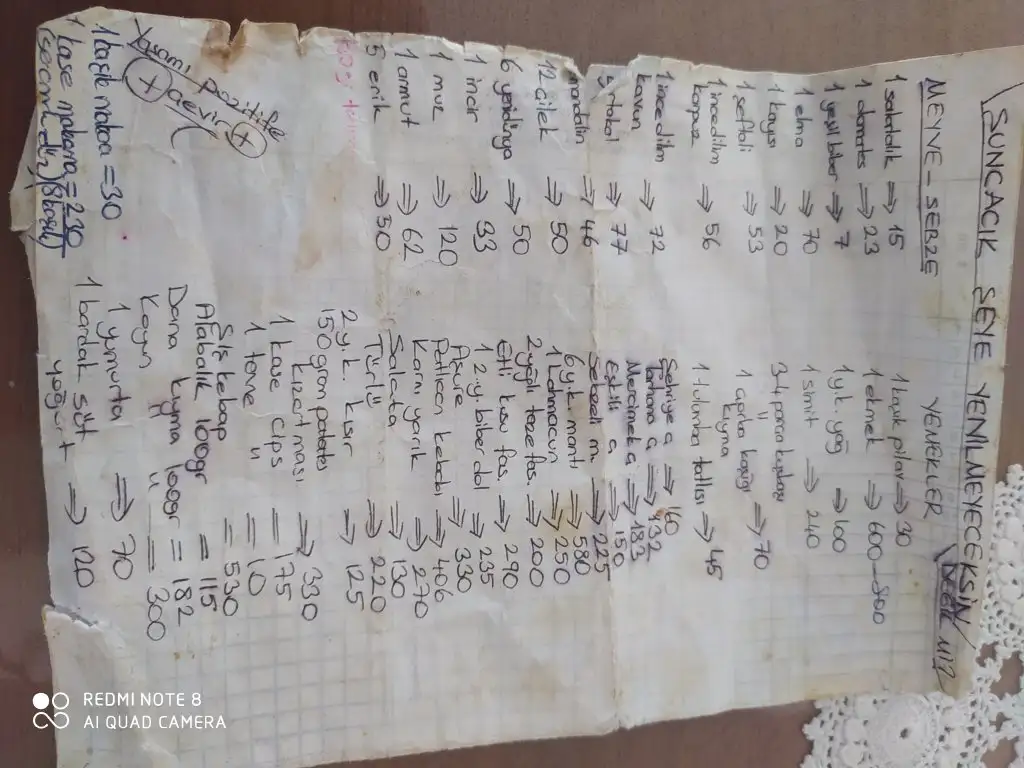 SUNCACIK ŞEYE YENİLMEYECEKSİN
MEYVE - SEBZE
1 salatalık ⇒ 15
1 domates ⇒ 23
1 yeşil biber ⇒ 7
1 elma ⇒ 70
1 kayısı ⇒ 20
1 şeftali ⇒ 53
1 incedilim karpuz ⇒ 56
1 incedilim kavun ⇒ 72
portakal ⇒ 77
mandalin ⇒ 46
12 çilek ⇒ 50
6 yenidünya ⇒ 50
1 incir ⇒ 93
1 muz ⇒ 120
1 armut ⇒ 62
5 erik ⇒ 50
YEMEKLER
1 kaşık pilav ⇒ 30
1 ekmek ⇒ 600-800
1 yk. yağ ⇒ 100
1 simit ⇒ 240
1 çorba kaşığı ⇒ 70
kıyma
1 tulumba tatlısı ⇒ 45
Şehriye ç ⇒ 160
Tarhana ç ⇒ 132
Mercimek ç ⇒ 183
⇒ 150
⇒ 225
6 yk. mantı ⇒ 580
1 lahmacun ⇒ 250
2 yağlı taze fas. ⇒ 200
Etli kuru fas. ⇒ 290
1 z.y. biber dol ⇒ 235
Aşure ⇒ 330
Patlıcan kebabı ⇒ 406
Karnı yarık ⇒ 270
Salata ⇒ 130
Türlü ⇒ 220
2 yk. kısır ⇒ 125
150 gram patates kızartması ⇒ 330
1 kase cips = 175
1 tane " = 10
Şiş kebap = 530
Alabalık 100gr = 115
Dana kıyma 100gr = 182
Koyun " " = 300
1 yumurta ⇒ 70
1 bardak süt yoğurt ⇒ 120
Yağını pozitife çevir
1 kaşık makarna = 30
1 kase makarna = 230
REDMI NOTE 8
AI QUAD CAMERA